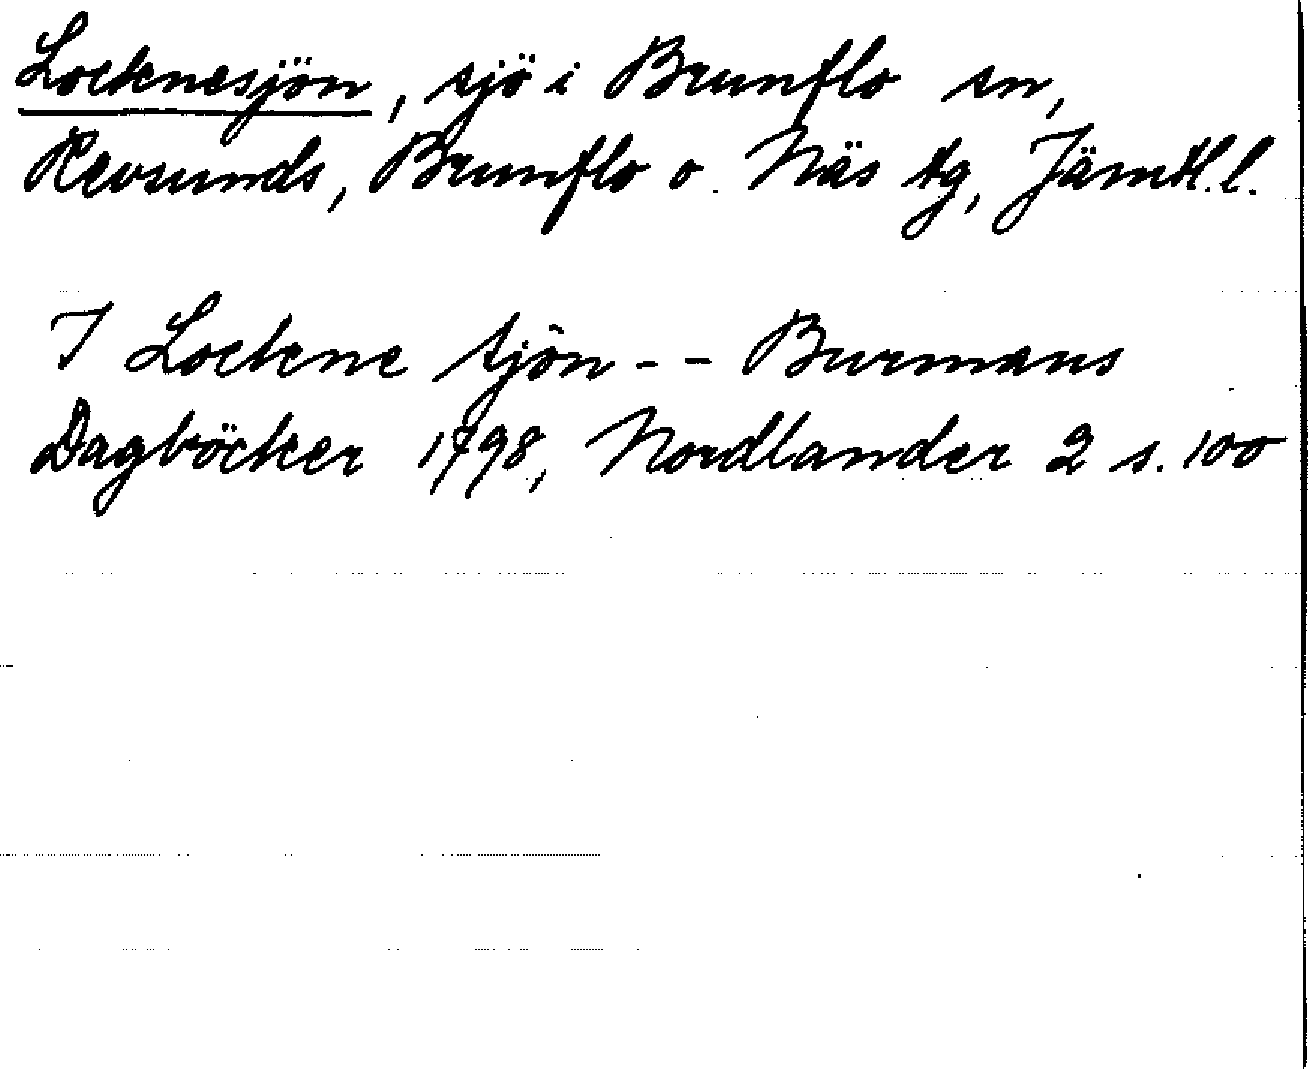 Locknesjön, sjö i Brunflo sn,
Revsunds, Brunflo o. Näs tg, Jämtl.l.
I Lockne sjön - - Burmans
Dagböcker 1798, Nordlander 2 s. 100